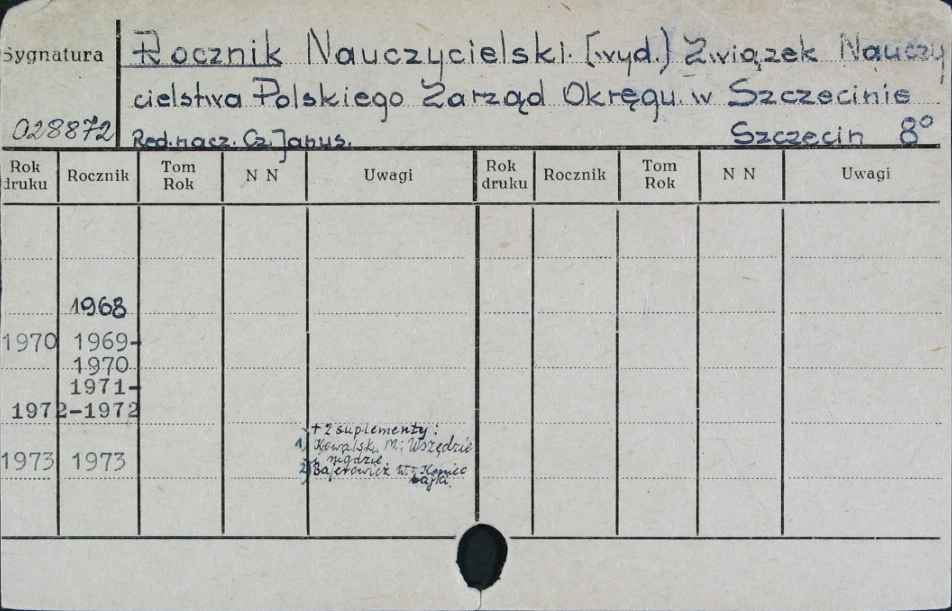 Sygnatura
Rocznik Nauczycielski. [wyd.] Związek Nauczy
cielstwa Polskiego Zarząd Okręgu w Szczecinie
028872 Red. nacz. Cz. Janus. Szczecin 8°
Rok druku Rocznik Tom Rok N N Uwagi Rok druku Rocznik Tom Rok N N Uwagi
1968
1970 1969-
1970
1971-
1972-1972
+ 2 suplementy:
1) Kowalski M.: Wszędzie
i nigdzie
1973 1973
2) Bajerowicz W.: Koniec
bajki.